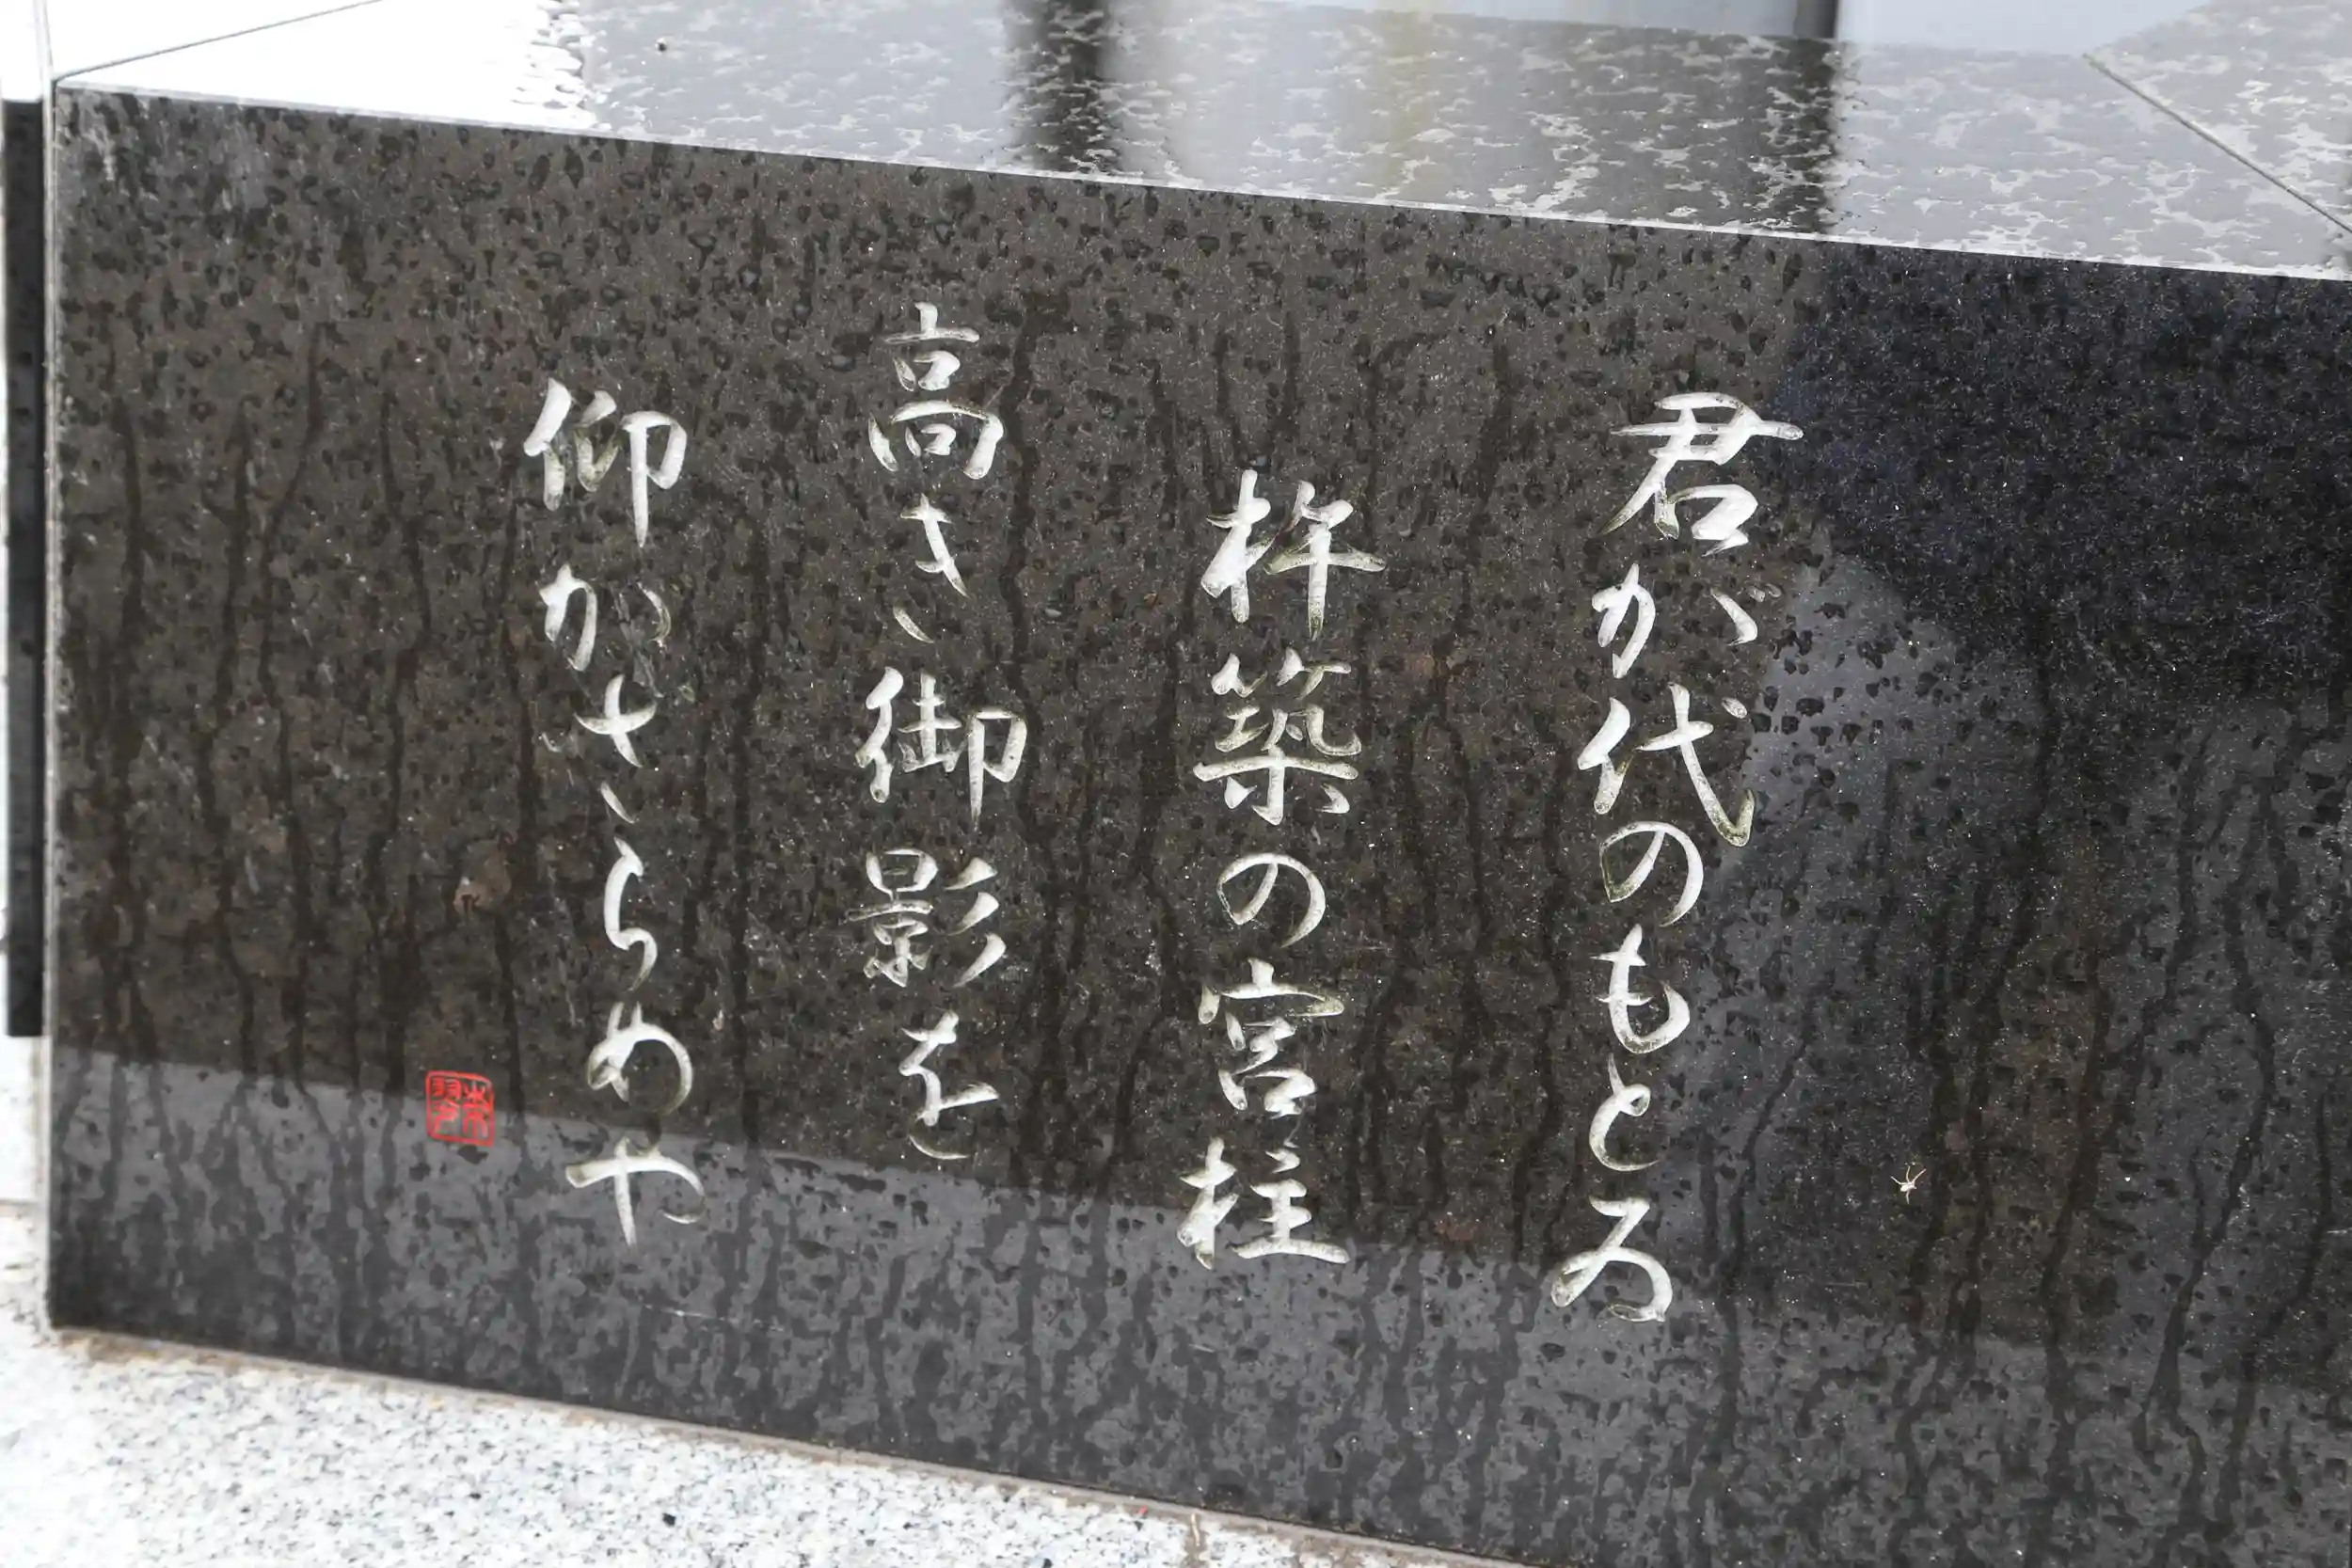 君が代のもとゐ
杵築の宮柱
高き御影を
仰がさらめや